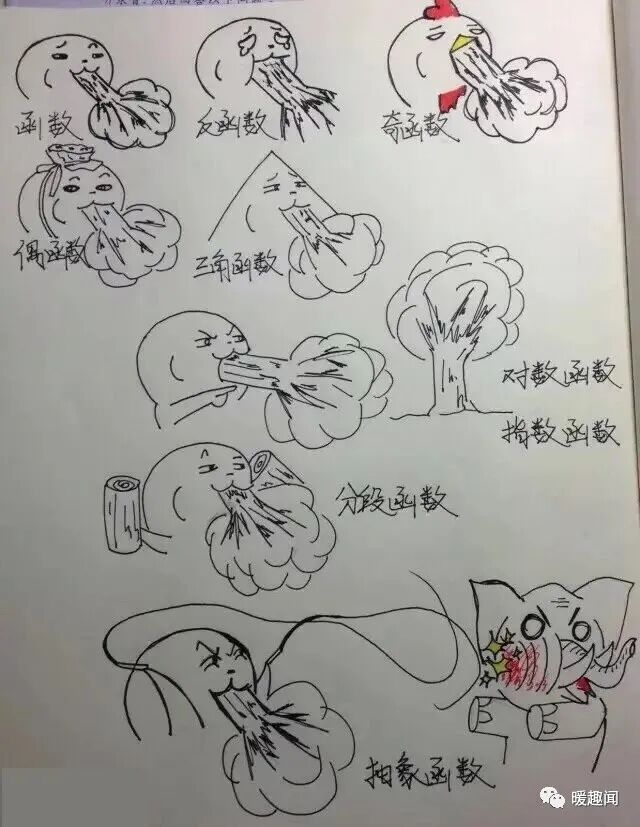 函数
反函数
奇函数
偶函数
三角函数
对数函数
指数函数
分段函数
抽象函数
暖趣闻